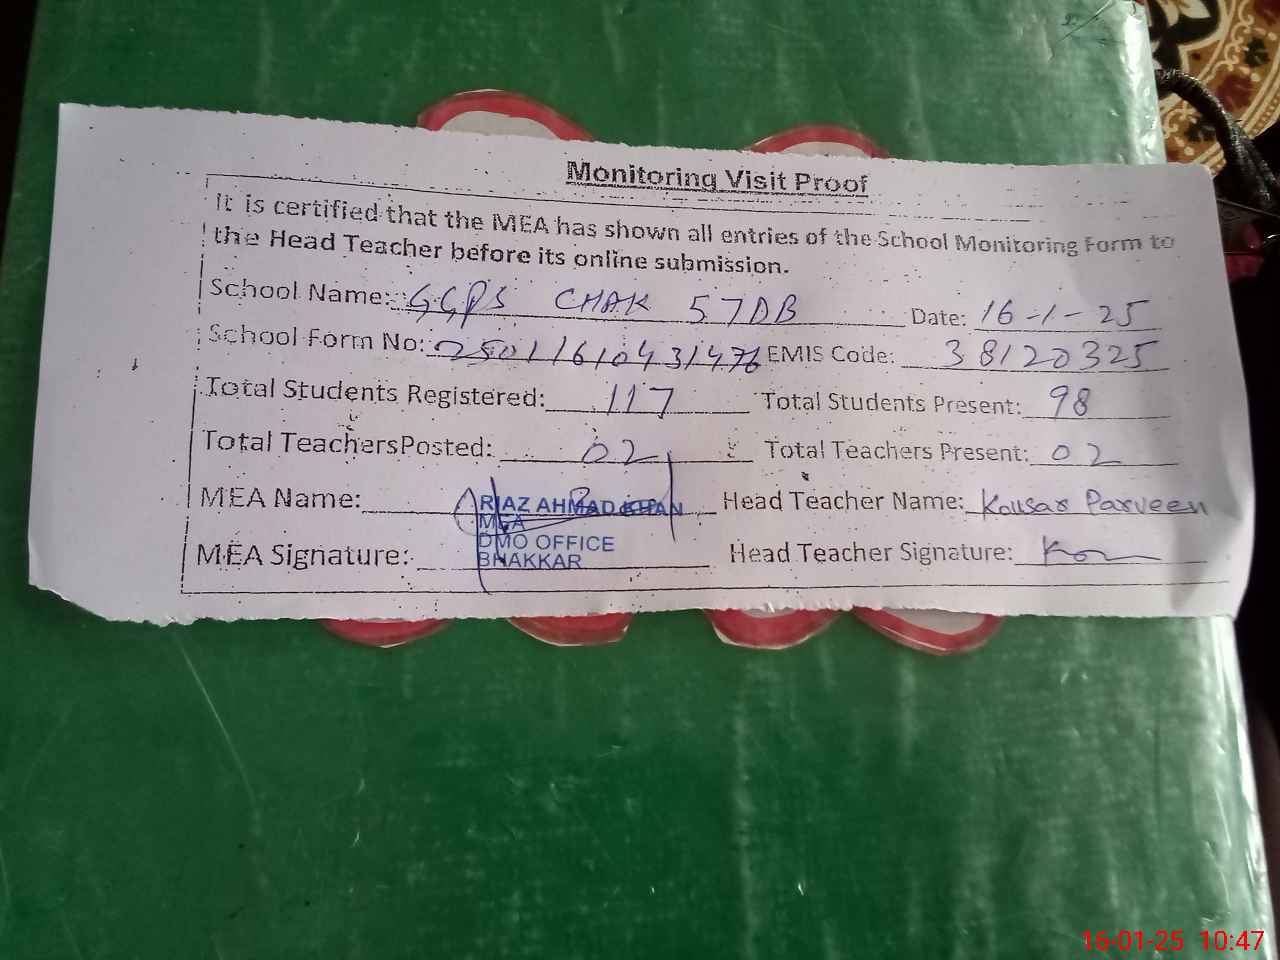 Monitoring Visit Proof
It is certified that the MEA has shown all entries of the School Monitoring Form to
the Head Teacher before its online submission.
School Name: GGPS CHAK 57DB Date: 16-1-25
School Form No: 25011610431476 EMIS Code: 38120325
Total Students Registered: 117 Total Students Present: 98
Total TeachersPosted: 02 Total Teachers Present: 02
MEA Name: RIAZ AHMAD KHAN Head Teacher Name: Kousar Parveen
MEA
DMO OFFICE
MEA Signature: BHAKKAR Head Teacher Signature:
16-01-25 10:47